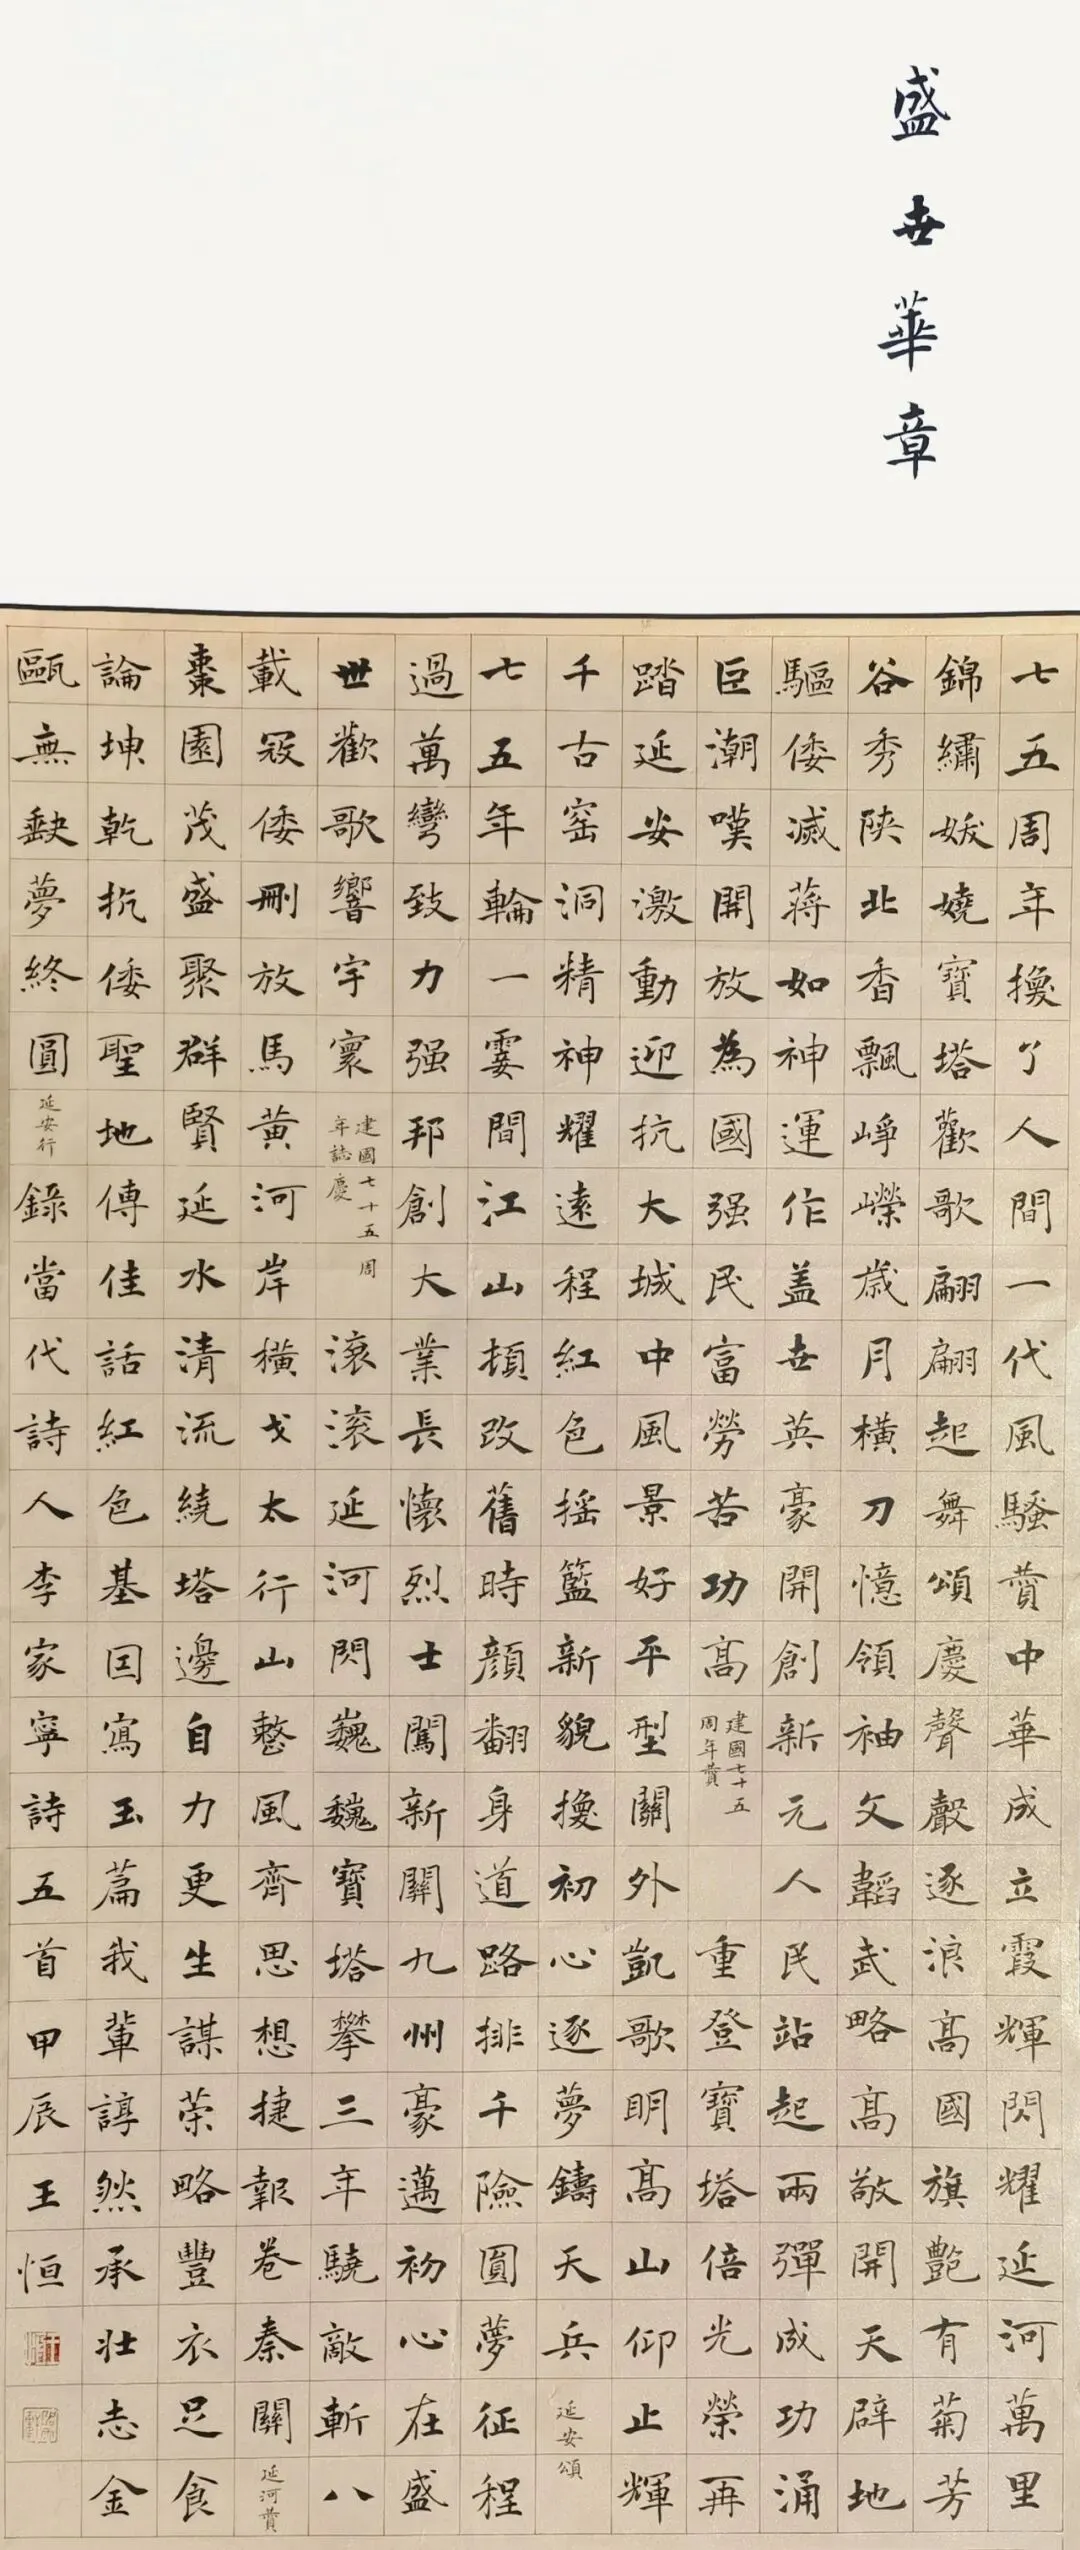 盛世華章
七五周年換了人間一代風騷贊中華成立霞輝閃耀延河萬里
錦繡妖嬈寶塔歡歌翩翩起舞頌慶聲聲逐浪高國旗艷有菊芳
谷秀陝北香飄崢嶸歲月橫刀憶領袖文韜武略高敬開天辟地
驅倭滅蔣如神運作盖世英豪開創新元人民站起兩彈成功涌
巨潮嘆開放為國强民富勞苦功高建國七十五周年贊重登寶塔倍光榮再
踏延安激動迎抗大城中風景好平型關外凱歌明高山仰止輝
千古窑洞精神耀遠程紅色摇籃新貌換初心逐夢鑄天兵延安頌
七五年輪一霎間江山頓改舊時顔翻身道路排千險圓夢征程
過萬彎致力强邦創大業長懷烈士闖新關九州豪邁初心在盛
世歡歌響宇寰建國七十五周年誌慶滚滚延河閃巍巍寶塔攀三年驍敵斬八
載寇倭刪放馬黄河岸橫戈太行山整風齊思想捷報卷秦關延河贊
棗園茂盛聚群賢延水清流繞塔邊自力更生謀荣略豐衣足食
論坤乾抗倭聖地傳佳話紅色基因寫玉篇我輩諄然承壮志金
甌無缺夢終圓延安行錄當代詩人李家寧詩五首甲辰王恒